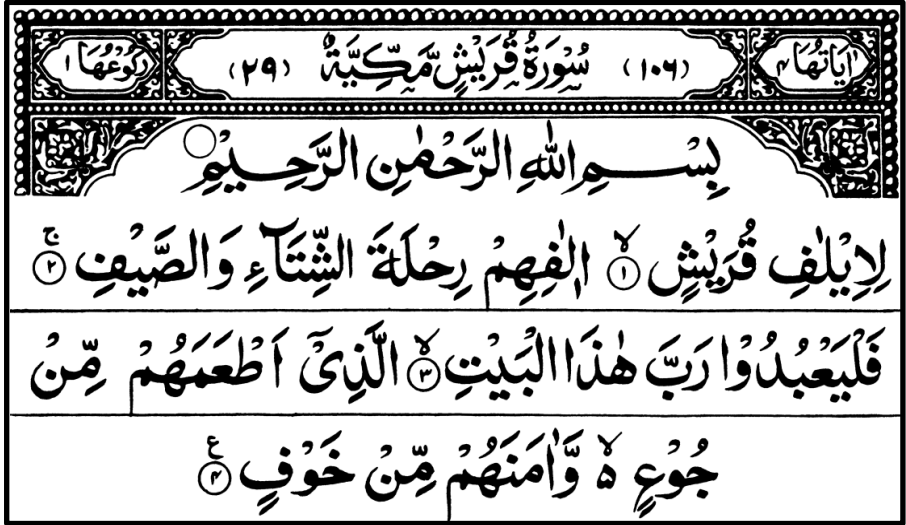 اٰیَاتُهَا ۴ (۱۰۶) سُوْرَةُ قُرَیْشٍ مَّكِّیَّةٌ (۲۹) رُكُوْعُهَا ۱
بِسْمِ اللّٰهِ الرَّحْمٰنِ الرَّحِیْمِ
لِاِیْلٰفِ قُرَیْشٍ ۙ۱ اٖلٰفِهِمْ رِحْلَةَ الشِّتَآءِ وَالصَّیْفِ ۚ۲
فَلْیَعْبُدُوْا رَبَّ هٰذَا الْبَیْتِ ۙ۳ الَّذِیْۤ اَطْعَمَهُمْ مِّنْ
جُوْعٍ ۙ۵ وَّاٰمَنَهُمْ مِّنْ خَوْفٍ ۴ ع